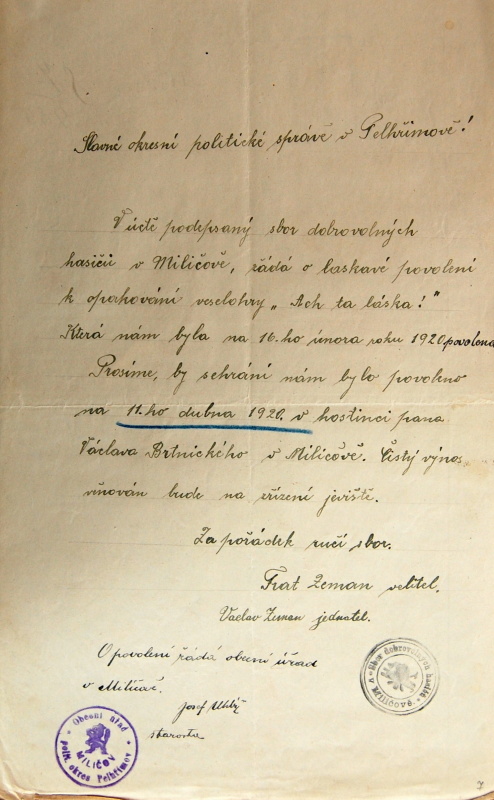 Slavné okresní politické správě v Pelhřimově!
V úctě podepsaný sbor dobrovolných
hasičů v Miličově, řádá o laskavé povolení
k opakování veselohry „Ach ta láska!"
Která nám byla na 16.ho února roku 1920 povolena
Prosíme, by sehrání nám bylo povoleno
na 11.ho dubna 1920. v hostinci pana
Václava Brtnického v Miličově. Čistý výnos
věnován bude na zřízení jeviště.
Za pořádek ručí sbor.
Frat Zeman velitel.
Vaclav Zeman jednatel.
O povolení řádá obecní úřad
v Miličově.
Josef
starosta
Sbor dobrovolných hasičů v Miličově.
Obecní úřad
MILIČOV
polit. okres Pelhřimov